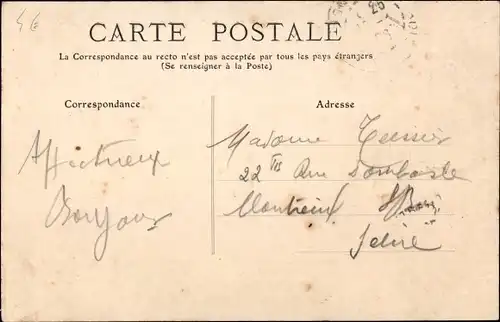 4€
CARTE POSTALE
La Correspondance au recto n'est pas acceptée par tous les pays étrangers
(Se renseigner à la Poste)
Correspondance
Adresse
Affectueux
Bonjour
Madame
22 Rue Dombasle
Montreuil
Seine